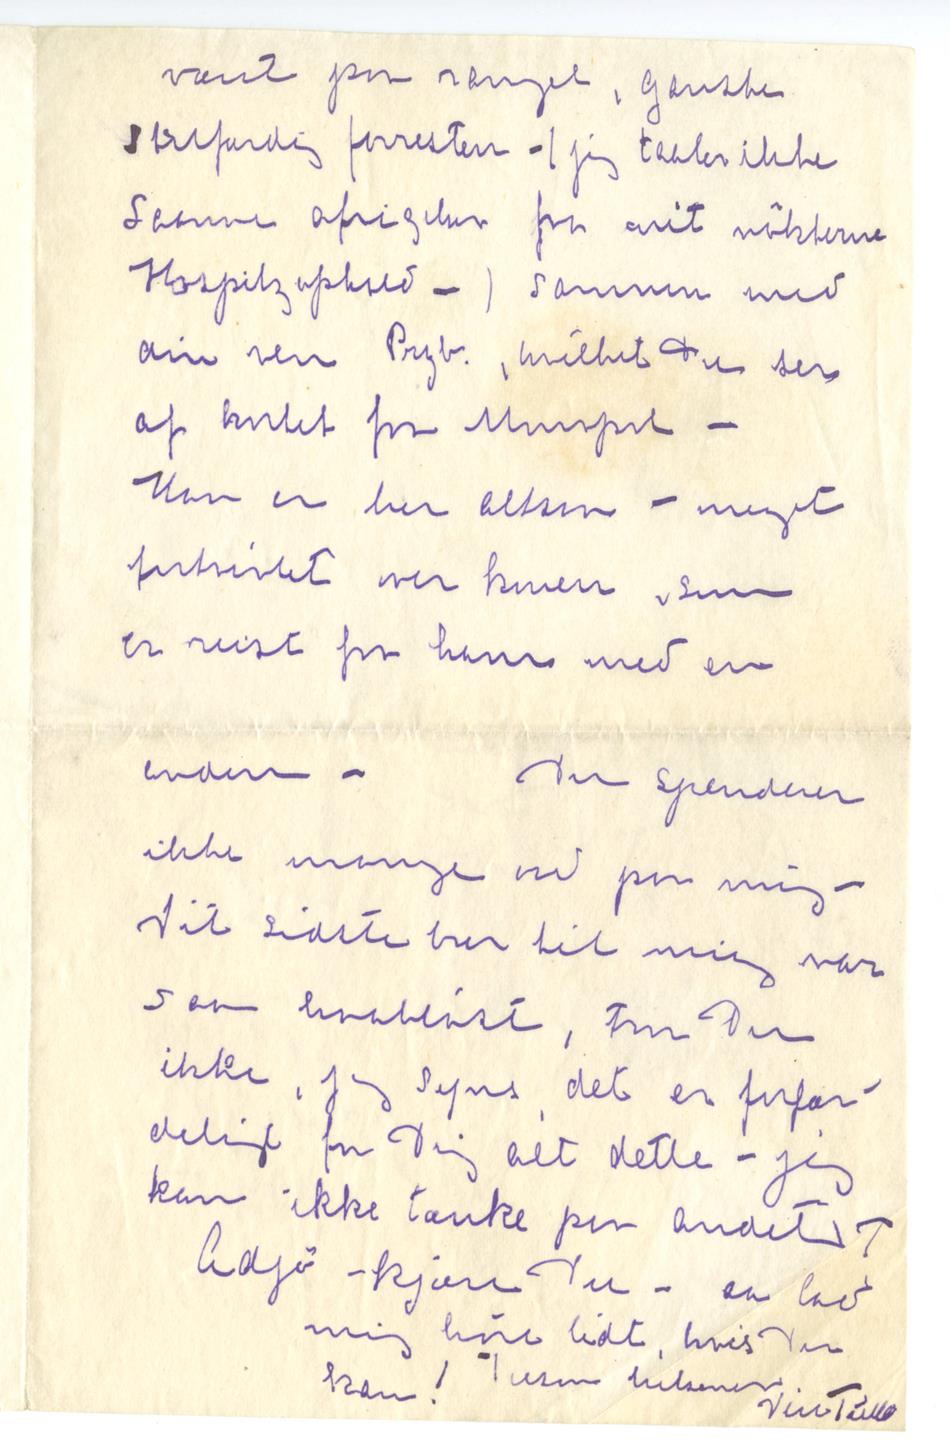 vært paa rangel, ganske
skelfærdig forresten – (jeg taaler ikke
saanne afvigelser fra mit nökterne
Hospitzophold –) sammen med
din ven Przb., hvilket Du ser
af kortet fra
Han er her altsaa – meget
fortvivlet over konen, som
er reist fra ham med en
anden – Du spenderer
ikke mange ord paa mig –
Dit sidste brev til mig var
saa haabløst, tror Du
ikke, jeg syns, det er forfær-
deligt for Dig alt dette – jeg
kan ikke tænke paa andet
Adjö – kjære Du – aa lad
mig höre lidt, hvis Du
kan! Tusen hilsener
Din Tulla